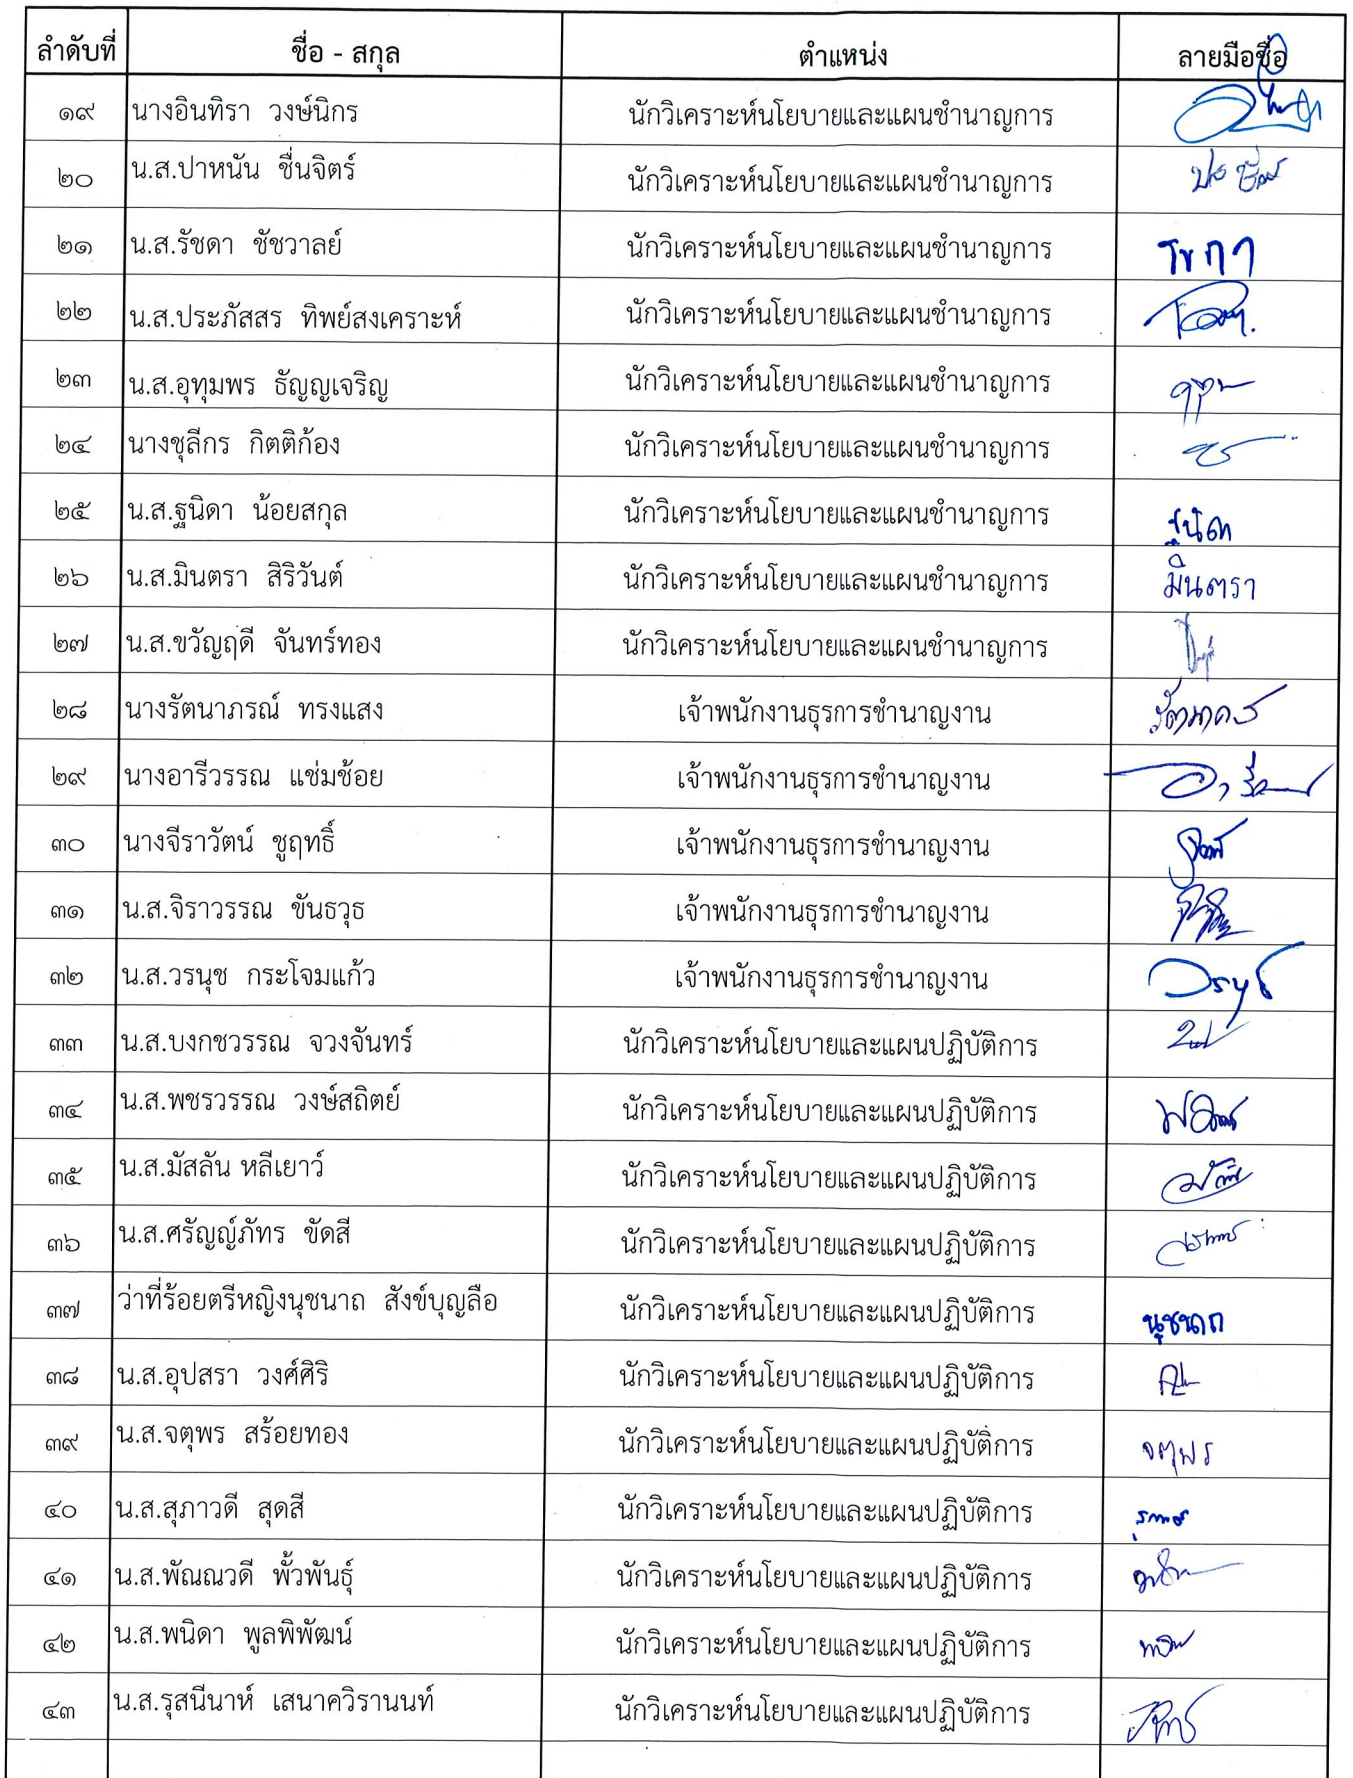 ลำดับที่ ชื่อ - สกุล ตำแหน่ง ลายมือชื่อ
๑๙ นางอินทิรา วงษ์นิกร นักวิเคราะห์นโยบายและแผนชำนาญการ
๒๐ น.ส.ปาหนัน ชื่นจิตร์ นักวิเคราะห์นโยบายและแผนชำนาญการ
๒๑ น.ส.รัชดา ชัชวาลย์ นักวิเคราะห์นโยบายและแผนชำนาญการ
๒๒ น.ส.ประภัสสร ทิพย์สงเคราะห์ นักวิเคราะห์นโยบายและแผนชำนาญการ
๒๓ น.ส.อุทุมพร ธัญญเจริญ นักวิเคราะห์นโยบายและแผนชำนาญการ
๒๔ นางชุลีกร กิตติก้อง นักวิเคราะห์นโยบายและแผนชำนาญการ
๒๕ น.ส.ฐนิดา น้อยสกุล นักวิเคราะห์นโยบายและแผนชำนาญการ ฐนิดา
๒๖ น.ส.มินตรา สิริวันต์ นักวิเคราะห์นโยบายและแผนชำนาญการ มินตรา
๒๗ น.ส.ขวัญฤดี จันทร์ทอง นักวิเคราะห์นโยบายและแผนชำนาญการ
๒๘ นางรัตนาภรณ์ ทรงแสง เจ้าพนักงานธุรการชำนาญงาน
๒๙ นางอารีวรรณ แช่มช้อย เจ้าพนักงานธุรการชำนาญงาน
๓๐ นางจีราวัตน์ ชูฤทธิ์ เจ้าพนักงานธุรการชำนาญงาน
๓๑ น.ส.จิราวรรณ ขันธวุธ เจ้าพนักงานธุรการชำนาญงาน
๓๒ น.ส.วรนุช กระโจมแก้ว เจ้าพนักงานธุรการชำนาญงาน วรนุช
๓๓ น.ส.บงกชวรรณ จวงจันทร์ นักวิเคราะห์นโยบายและแผนปฏิบัติการ
๓๔ น.ส.พชรวรรณ วงษ์สถิตย์ นักวิเคราะห์นโยบายและแผนปฏิบัติการ
๓๕ น.ส.มัสลัน หลีเยาว์ นักวิเคราะห์นโยบายและแผนปฏิบัติการ
๓๖ น.ส.ศรัญญ์ภัทร ขัดสี นักวิเคราะห์นโยบายและแผนปฏิบัติการ
๓๗ ว่าที่ร้อยตรีหญิงนุชนาถ สังข์บุญลือ นักวิเคราะห์นโยบายและแผนปฏิบัติการ นุชนาถ
๓๘ น.ส.อุปสรา วงศ์ศิริ นักวิเคราะห์นโยบายและแผนปฏิบัติการ
๓๙ น.ส.จตุพร สร้อยทอง นักวิเคราะห์นโยบายและแผนปฏิบัติการ จตุพร
๔๐ น.ส.สุภาวดี สุดสี นักวิเคราะห์นโยบายและแผนปฏิบัติการ
๔๑ น.ส.พัณณวดี พั้วพันธุ์ นักวิเคราะห์นโยบายและแผนปฏิบัติการ
๔๒ น.ส.พนิดา พูลพิพัฒน์ นักวิเคราะห์นโยบายและแผนปฏิบัติการ
๔๓ น.ส.รุสนีนาห์ เสนาควิรานนท์ นักวิเคราะห์นโยบายและแผนปฏิบัติการ